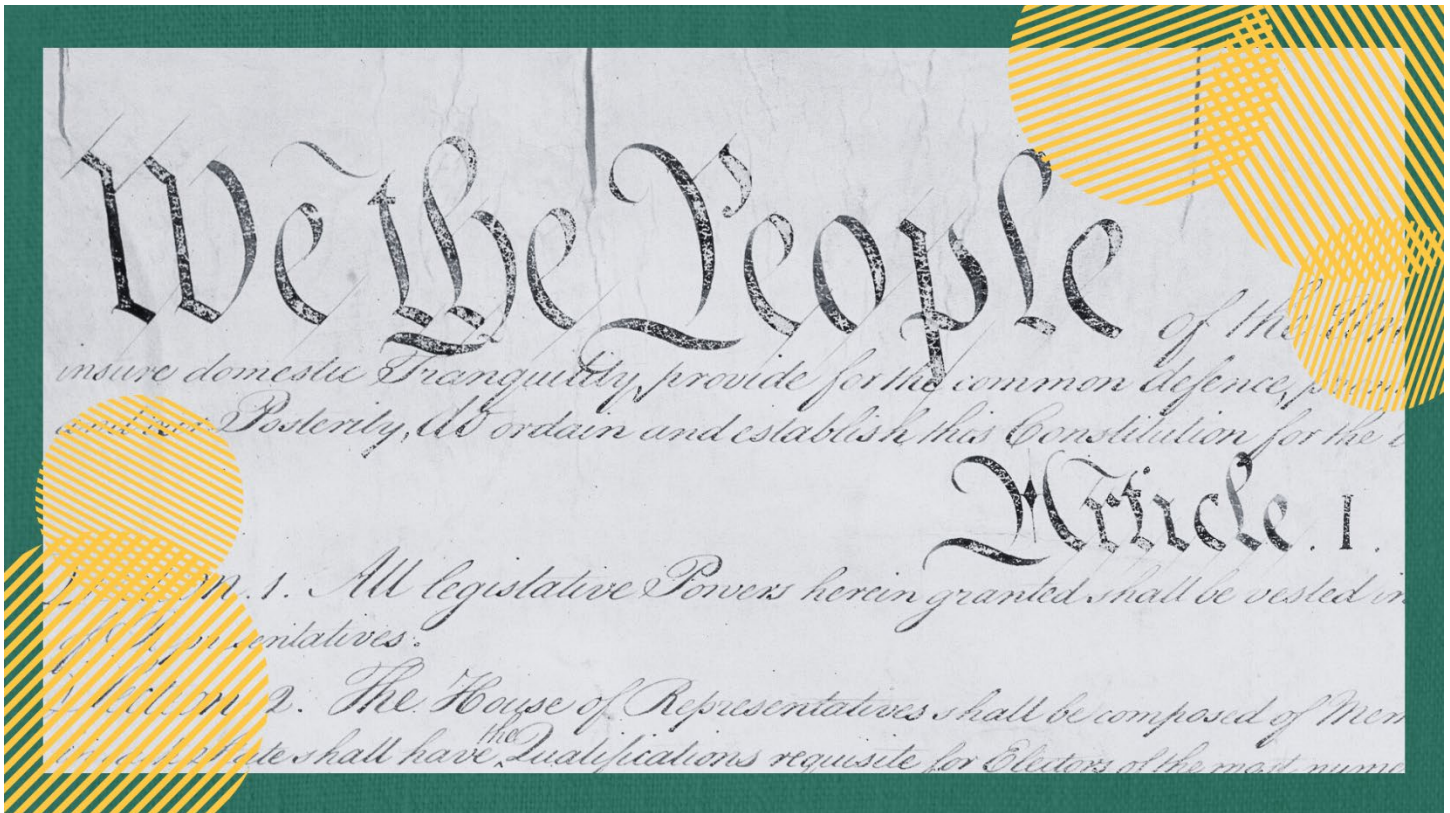 We the People of the
insure domestic Tranquility, provide for the common defence,
Posterity, do ordain and establish this Constitution for the
Article. I.
Section. 1. All legislative Powers herein granted shall be vested in
of Representatives.
Section. 2. The House of Representatives shall be composed of Mem
State shall have the Qualifications requisite for Electors of the most nume